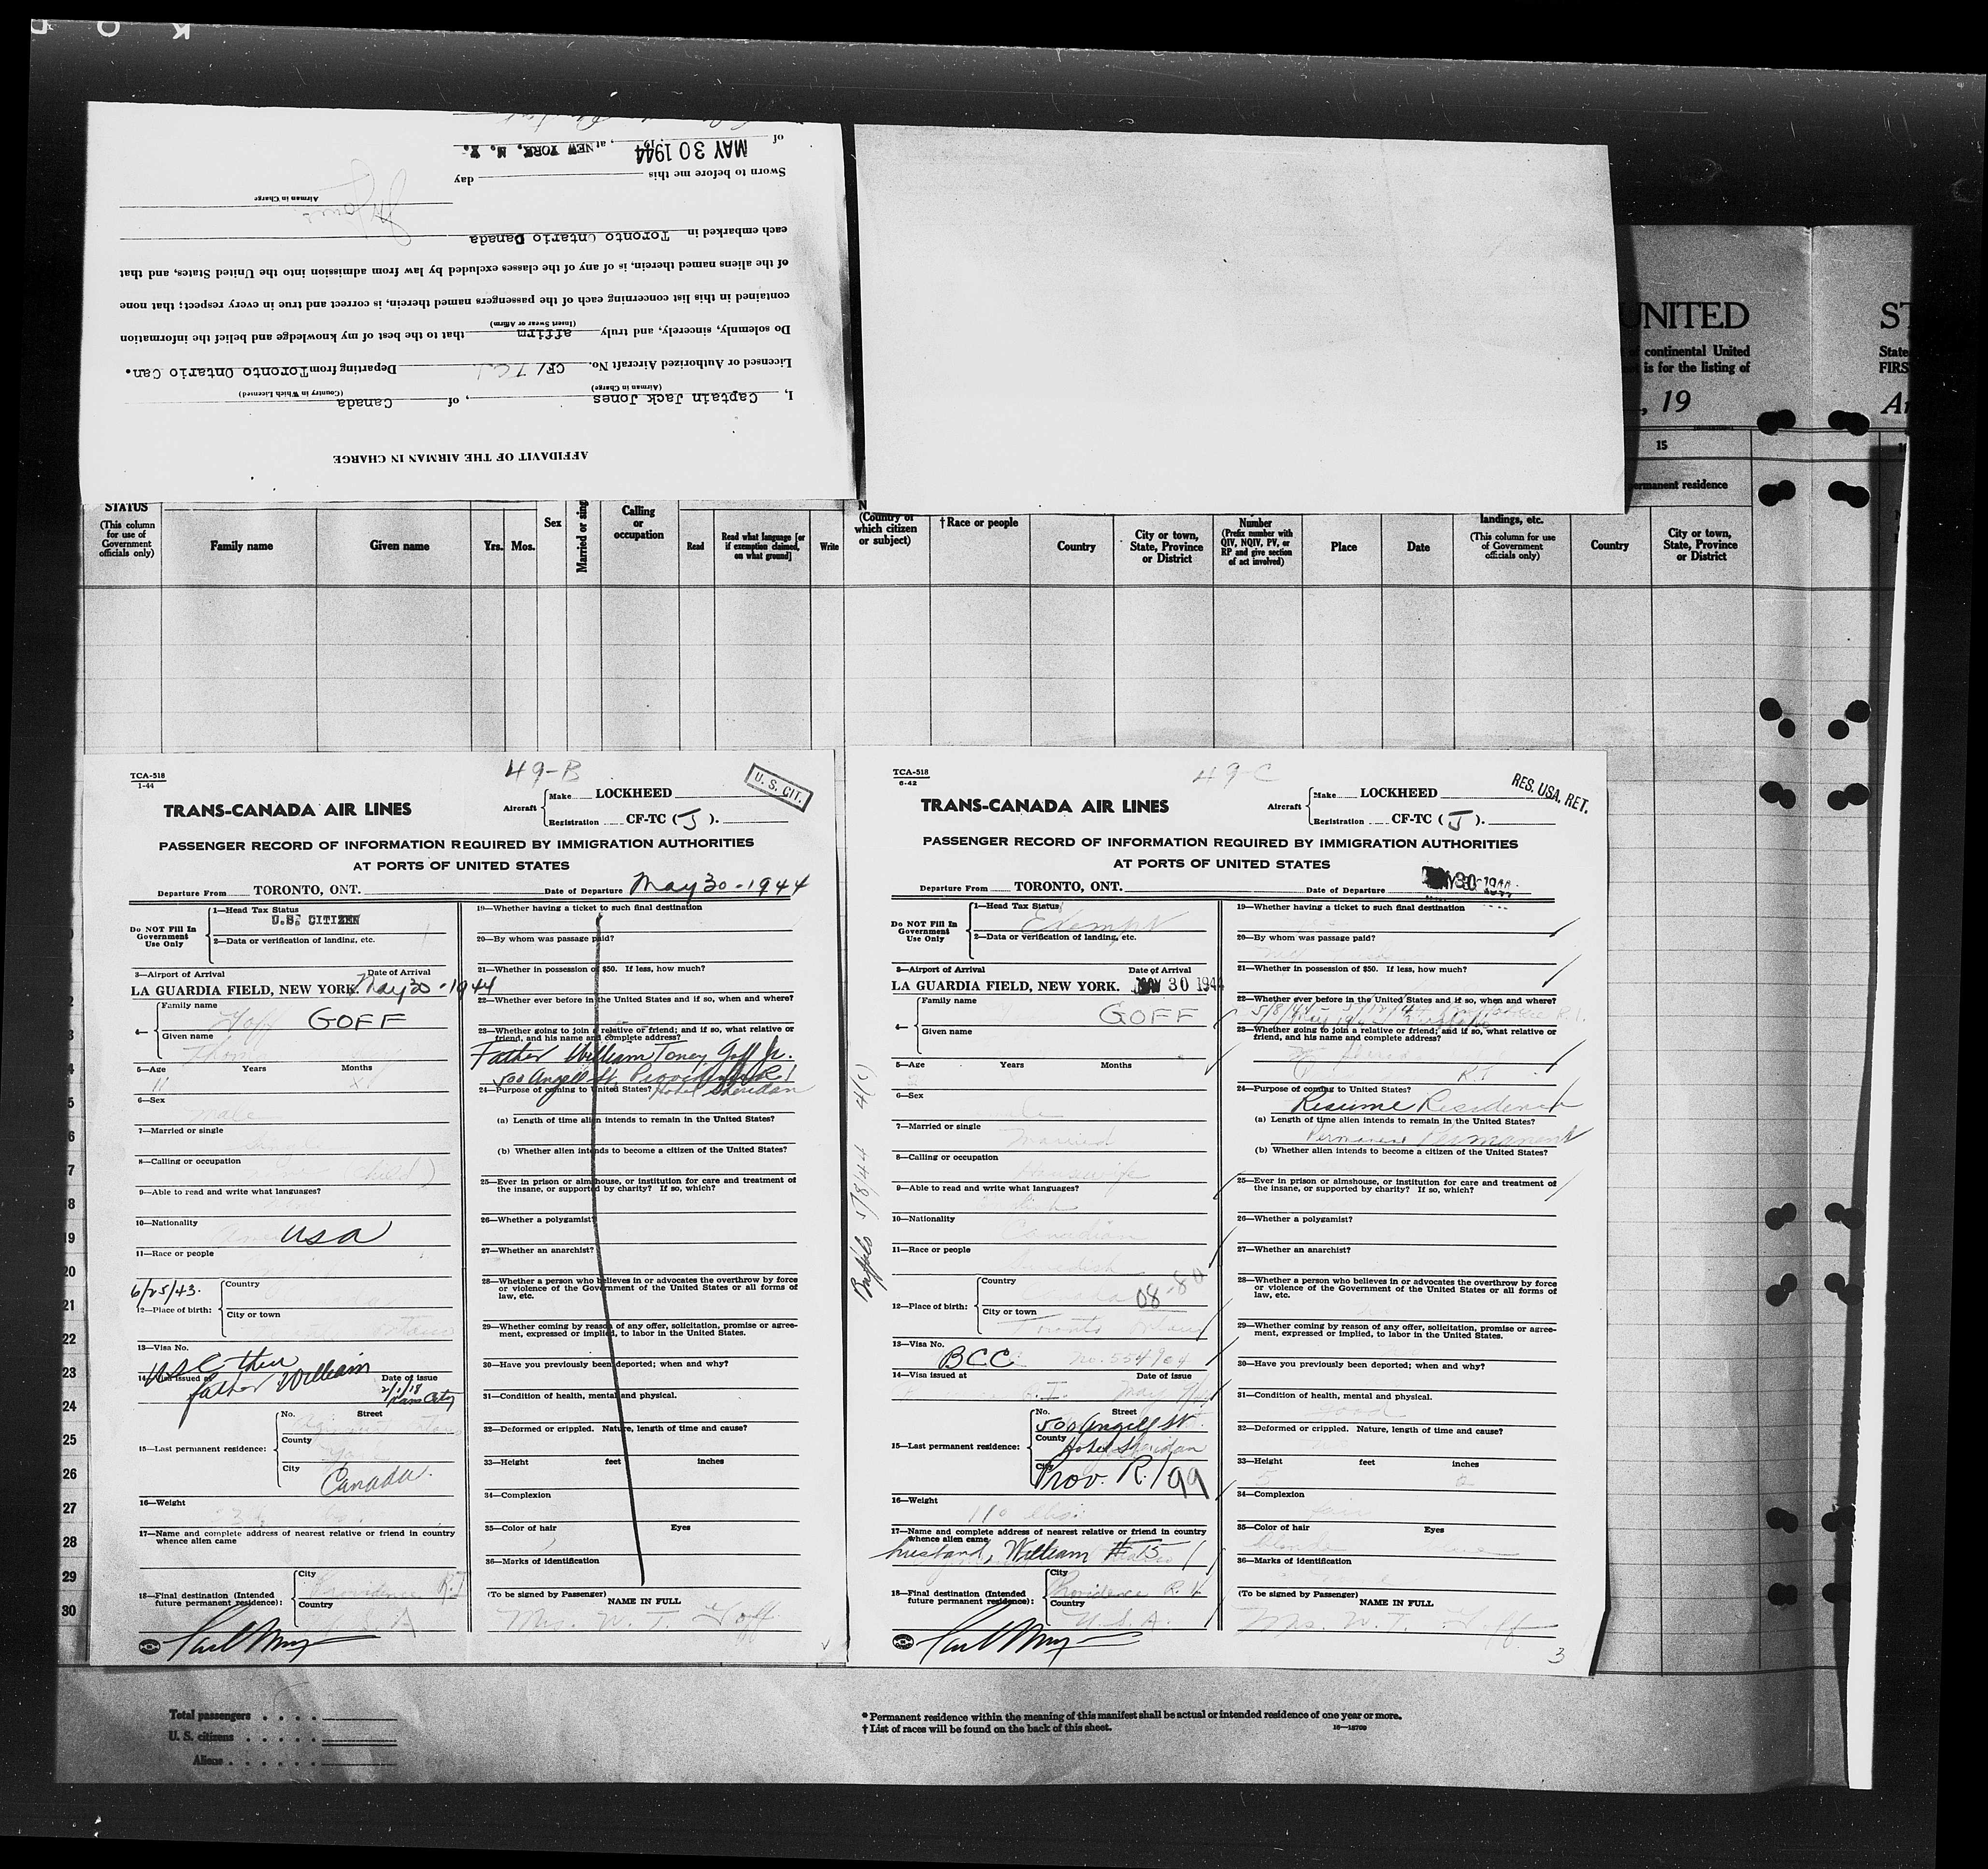 AFFIDAVIT OF THE AIRMAN IN CHARGE
I, Captain Jack Jones, of Canada
(Airman in Charge) (Country in Which Licensed)
Licensed or Authorized Aircraft No. CF/TCJ Departing from Toronto Ontario Can.
Do solemnly, sincerely, and truly affirm that to the best of my knowledge and belief the information
(Insert Swear or Affirm)
contained in this list concerning each of the passengers named therein, is correct and true in every respect; that none
of the aliens named therein, is of any of the classes excluded by law from admission into the United States, and that
each embarked in Toronto Ontario Canada
Airman in Charge
Sworn to before me this day
of MAY 30 1944, at NEW YORK, N. Y.
UNITED
of continental United
is for the listing of
, 19
15
permanent residence
State
FIRS
STATUS
(This column
for use of
Government
officials only)
Family name
Given name
Yrs.
Mos.
Sex
Married or sing
Calling
or
occupation
Read
Read what language [or
if exemption claimed,
on what ground]
Write
(Country of
which citizen
or subject)
†Race or people
Country
City or town,
State, Province
or District
Number
(Prefix number with
QIV, NQIV, PV, or
RP and give section
of act involved)
Place
Date
landings, etc.
(This column for use
of Government
officials only)
Country
City or town,
State, Province
or District
TCA-518
1-44
49-B
U. S. CIT.
TRANS-CANADA AIR LINES
Aircraft
Make LOCKHEED
Registration CF-TC (J).
PASSENGER RECORD OF INFORMATION REQUIRED BY IMMIGRATION AUTHORITIES
AT PORTS OF UNITED STATES
Departure From TORONTO, ONT. Date of Departure May 30-1944
Do NOT Fill In
Government
Use Only
1—Head Tax Status
U.S. CITIZEN
2—Data or verification of landing, etc.
3—Airport of Arrival Date of Arrival
LA GUARDIA FIELD, NEW YORK. May 30-1944
4— Family name
Goff GOFF
Given name
5—Age Years Months
11
6—Sex
Male
7—Married or single
8—Calling or occupation
9—Able to read and write what languages?
10—Nationality
USA
11—Race or people
6/25/43.
12—Place of birth:
Country
City or town
13—Visa No.
USC thru
father William
14—Visa issued at Date of issue
2/1/18
Kans City
15—Last permanent residence:
No. Street
County
City
Canada.
16—Weight
17—Name and complete address of nearest relative or friend in country
whence alien came
18—Final destination (Intended
future permanent residence):
City
Providence R.I.
Country
19—Whether having a ticket to such final destination
20—By whom was passage paid?
21—Whether in possession of $50. If less, how much?
22—Whether ever before in the United States and if so, when and where?
23—Whether going to join a relative or friend; and if so, what relative or
friend, and his name and complete address?
Father William Toney Goff Jr.
500 Angell St. Providence R I
24—Purpose of coming to United States? Hotel Sheridan
(a) Length of time alien intends to remain in the United States?
(b) Whether alien intends to become a citizen of the United States?
25—Ever in prison or almshouse, or institution for care and treatment of
the insane, or supported by charity? If so, which?
26—Whether a polygamist?
27—Whether an anarchist?
28—Whether a person who believes in or advocates the overthrow by force
or violence of the Government of the United States or all forms of
law, etc.
29—Whether coming by reason of any offer, solicitation, promise or agree-
ment, expressed or implied, to labor in the United States.
30—Have you previously been deported; when and why?
31—Condition of health, mental and physical.
32—Deformed or crippled. Nature, length of time and cause?
33—Height feet inches
34—Complexion
35—Color of hair Eyes
36—Marks of identification
(To be signed by Passenger) NAME IN FULL
Mrs. W. T. Goff
TCA-518
6-42
49-C
RES. USA. RET.
TRANS-CANADA AIR LINES
Aircraft
Make LOCKHEED
Registration CF-TC (J).
PASSENGER RECORD OF INFORMATION REQUIRED BY IMMIGRATION AUTHORITIES
AT PORTS OF UNITED STATES
Departure From TORONTO, ONT. Date of Departure MAY 30 1944
Do NOT Fill In
Government
Use Only
1—Head Tax Status
Exempt
2—Data or verification of landing, etc.
3—Airport of Arrival Date of Arrival
LA GUARDIA FIELD, NEW YORK. MAY 30 1944
4— Family name
GOFF
Given name
5—Age Years Months
6—Sex
7—Married or single
Married
8—Calling or occupation
Housewife
9—Able to read and write what languages?
10—Nationality
Canadian
11—Race or people
12—Place of birth:
Country
Canada 08-80
City or town
Toronto Ontario
Buffalo 5/8/44 4(c)
13—Visa No.
BCC No. 554904
14—Visa issued at Date of issue
15—Last permanent residence:
No. Street
500 Angell St.
County
Hotel Sheridan
City
Prov. R.I 99
16—Weight
110 lbs.
17—Name and complete address of nearest relative or friend in country
whence alien came
husband, William #15
18—Final destination (Intended
future permanent residence):
City
Providence R.I.
Country
U.S.A.
19—Whether having a ticket to such final destination
20—By whom was passage paid?
21—Whether in possession of $50. If less, how much?
22—Whether ever before in the United States and if so, when and where?
23—Whether going to join a relative or friend; and if so, what relative or
friend, and his name and complete address?
R.I.
24—Purpose of coming to United States?
Resume Residence
(a) Length of time alien intends to remain in the United States?
Permanent Permanent
(b) Whether alien intends to become a citizen of the United States?
25—Ever in prison or almshouse, or institution for care and treatment of
the insane, or supported by charity? If so, which?
26—Whether a polygamist?
27—Whether an anarchist?
28—Whether a person who believes in or advocates the overthrow by force
or violence of the Government of the United States or all forms of
law, etc.
29—Whether coming by reason of any offer, solicitation, promise or agree-
ment, expressed or implied, to labor in the United States.
30—Have you previously been deported; when and why?
31—Condition of health, mental and physical.
good
32—Deformed or crippled. Nature, length of time and cause?
33—Height feet inches
5 2
34—Complexion
fair
35—Color of hair Eyes
blonde
36—Marks of identification
(To be signed by Passenger) NAME IN FULL
Mrs. W. T. Goff
3
19
20
21
22
23
24
25
26
27
28
29
30
Total passengers
U. S. citizens
Aliens
* Permanent residence within the meaning of this manifest shall be actual or intended residence of one year or more.
† List of races will be found on the back of this sheet. 16—18709